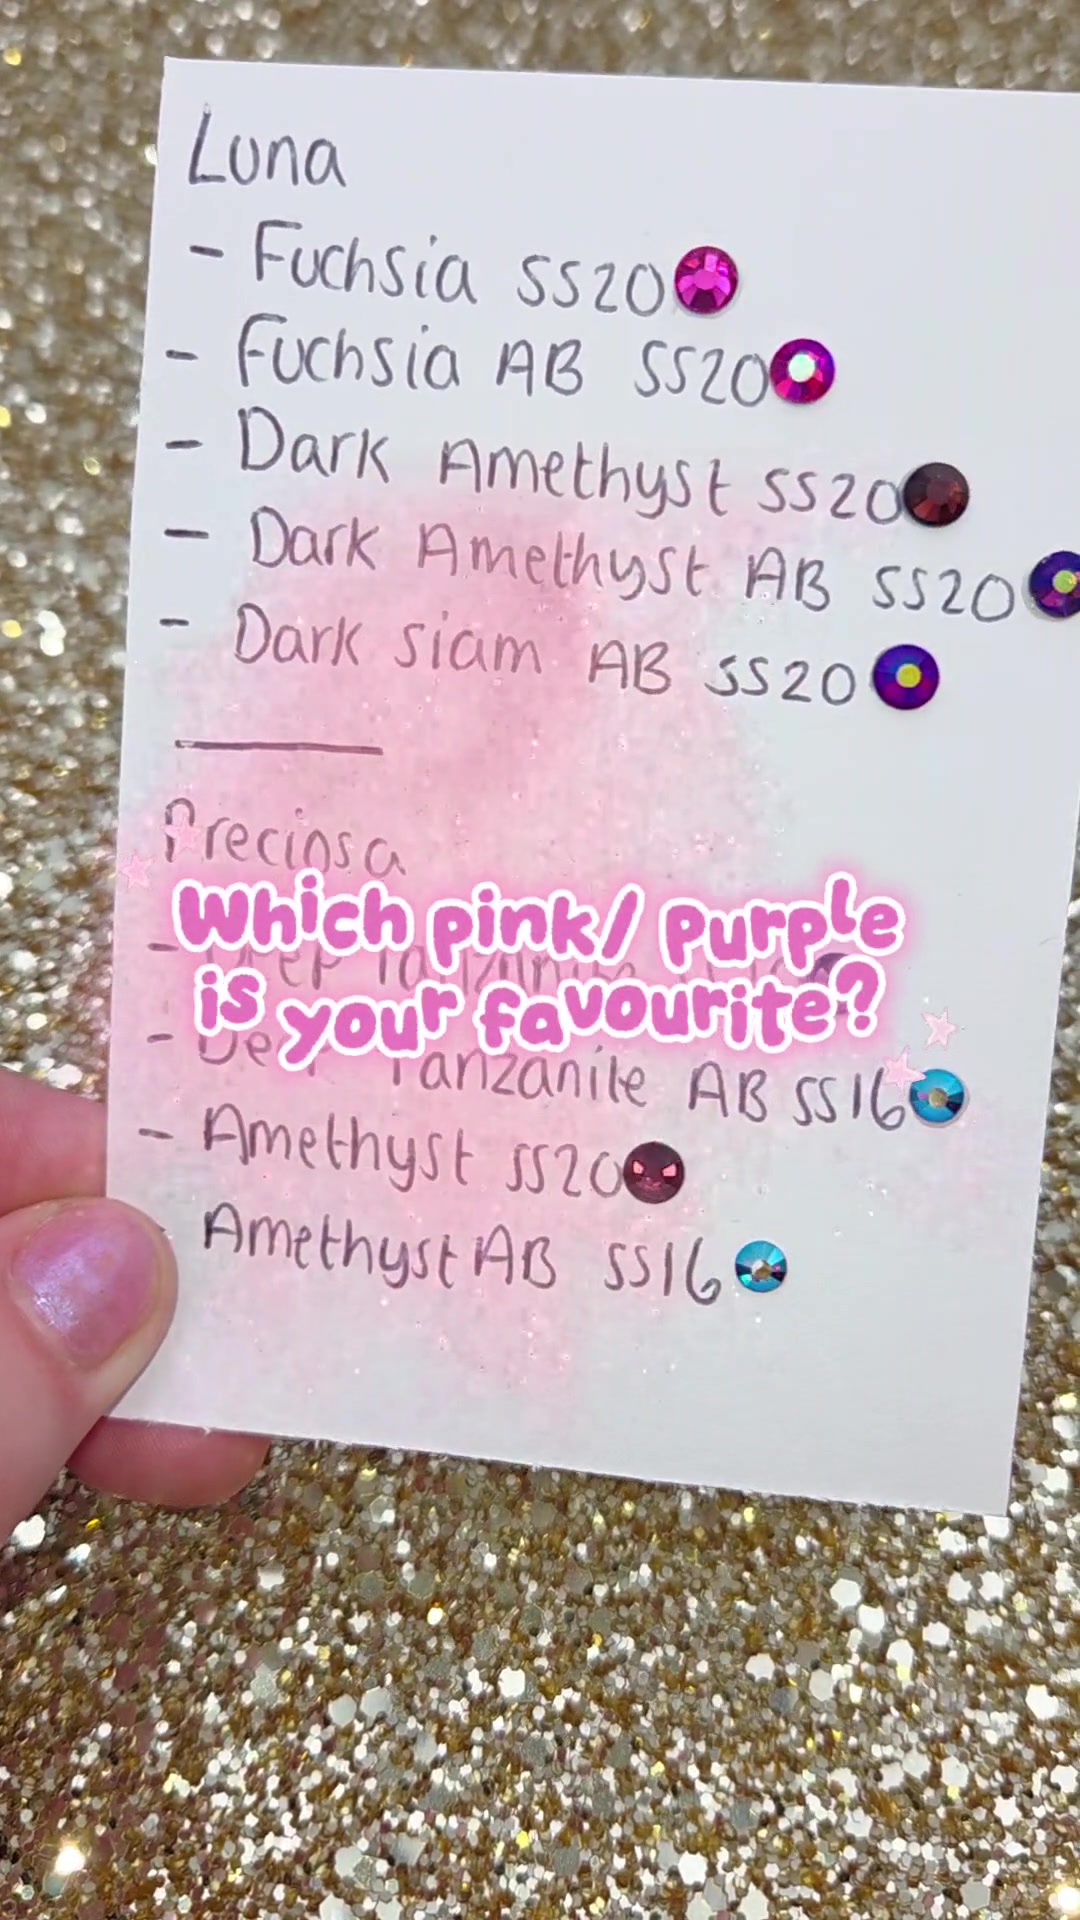 Luna
- Fuchsia SS20
- Fuchsia AB SS20
- Dark Amethyst SS20
- Dark Amethyst AB SS20
- Dark siam AB SS20
Preciosa
Which pink/ purple
is your favourite?
- Deep Tanzanite
- Deep Tanzanite AB SS16
- Amethyst SS20
Amethyst AB SS16